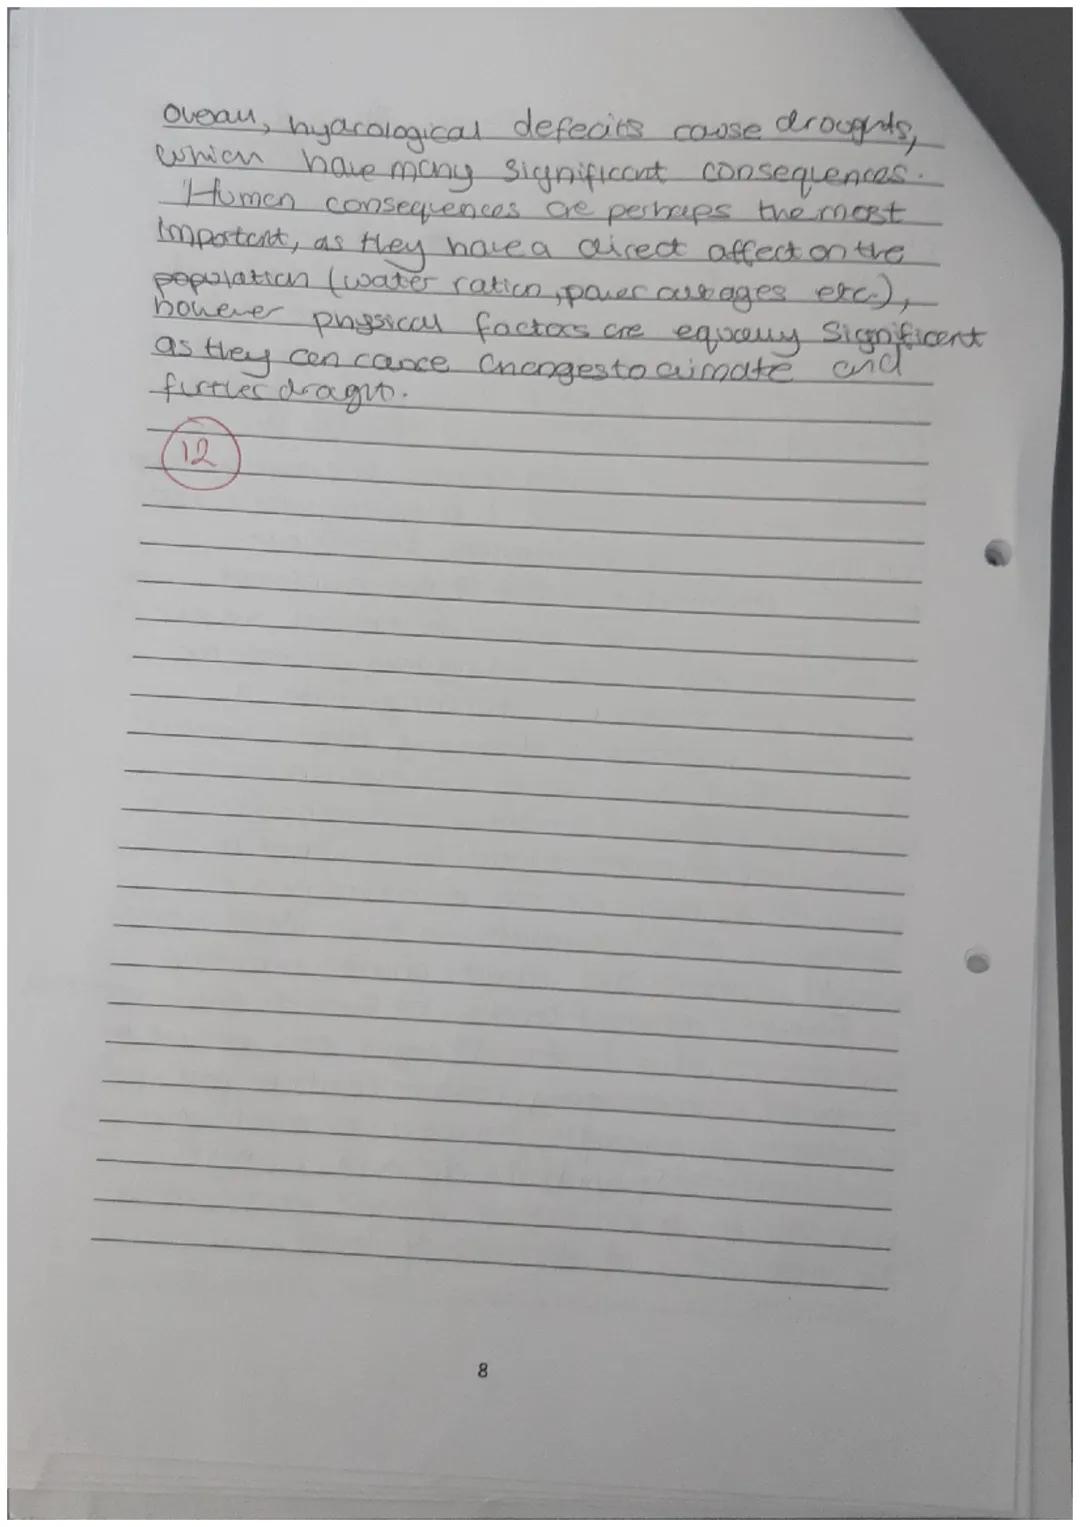 Overall, hydrological defecits cause droughts,
which have many significant consequences.
Human consequences are perhaps the most
important, as they have a direct affect on the
population (water ration, power outages etc.),
however physical factors are equally significant
as they can cause changes to climate and
further drought.
12
8